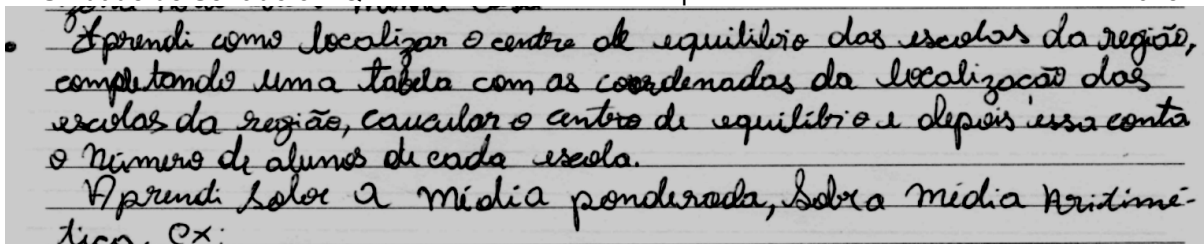 • Aprendi como localizar o centro de equilibrio das escolas da região,
completando uma tabela com as coordenadas da localização das
escolas da região, caucular o centro de equilíbrio e depois essa conta
o número de alunos de cada escola.
Aprendi sobre a mídia ponderada, sobra mídia Aritimé-
tica. ex: